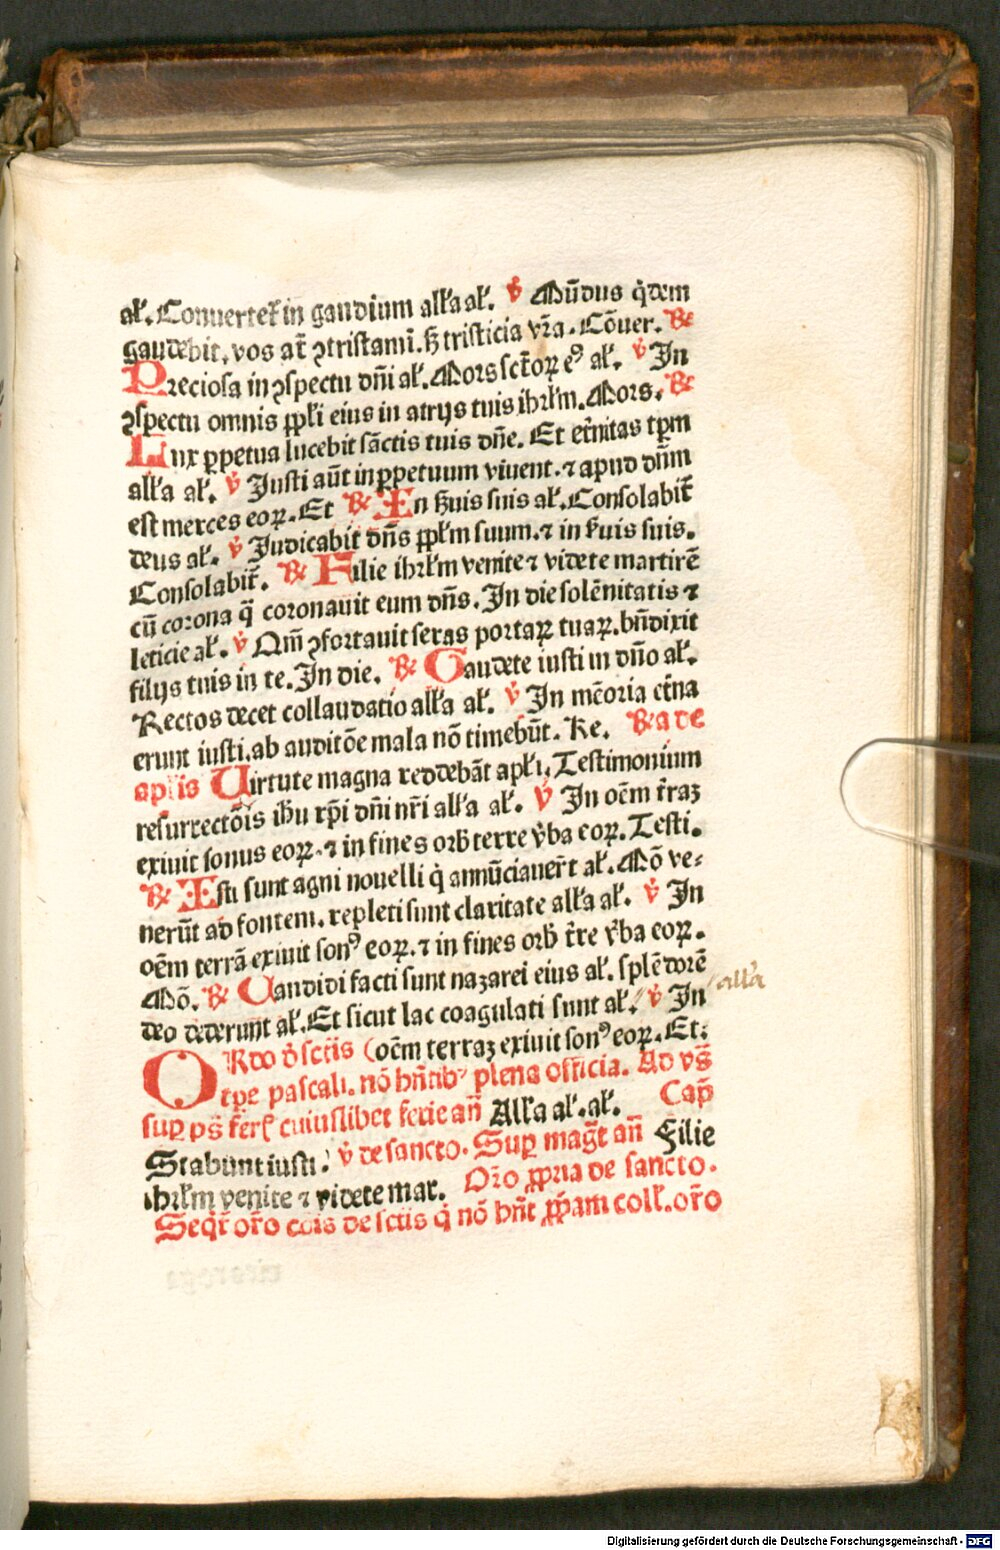 al̃. Conuertet̃ in gaudium all'a al̃. v̓ Mũdus q̃dem
gaudebit, vos aũt ꝯtristamĩ. sꝫ tristicia vr̃a. Cõuer. ℞
Preciosa in ꝯspectu dñi al̃. Mors sctõꝝ eꝰ al̃. v̓ In
ꝯspectu omnis ppl'i eius in atrijs tuis ihrl'm. Mors. ℞
Lux ꝑpetua lucebit sãctis tuis dñe. Et et̃nitas tꝑm
all'a al̃. v̓ Justi aũt in ꝑpetuum viuent. ⁊ apud dñm
est merces eoꝝ. Et ℞ In ẜuis suis al̃. Consolabit̃
deus al̃. v̓ Judicabit dñs ppl'm suum. ⁊ in ẜuis suis.
Consolabit̃. ℞ Filie ihrl'm venite ⁊ videte martirẽ
cũ corona q̃ coronauit eum dñs. In die solẽnitatis ⁊
leticie al̃. v̓ Qm̃ ꝯfortauit seras portaꝝ tuaꝝ. bñdixit
filijs tuis in te. In die. ℞ Gaudete iusti in dño al̃.
Rectos decet collaudatio all'a al̃. v̓ In mẽoria et̃na
erunt iusti. ab auditõe mala nõ timebũt. Re. ℞ a de
apl'is Uirtute magna reddebãt apl'i. Testimonium
resurrectõis ihu xp̃i dñi nr̃i all'a al̃. v̓ In oẽm t̃raꝫ
exiuit sonus eoꝝ. ⁊ in fines orb̃ terre v̓ba eoꝝ. Testi.
℞ Isti sunt agni nouelli q̃ annũciauer̃t al̃. Mõ ve⸗
nerũt ad fontem. repleti sunt claritate all'a al̃. v̓ In
oẽm terrã exiuit sonꝰ eoꝝ. ⁊ in fines orb̃ t̃re v̓ba eoꝝ.
Mõ. ℞ Candidi facti sunt nazarei eius al̃. splẽdorẽ
deo dederunt al̃. Et sicut lac coagulati sunt al̃. v̓ In
all'a
ORdo d̓ sctĩs (oẽm terraꝫ exiuit sonꝰ eoꝝ. Et:
tꝑe pascali. nõ hñtibꝰ plena officia. Ad vs̃
suꝑ ps̃ fer̃ cuiuslibet ferie añ All'a al̃. al̃. Cap̃
Stabunt iusti. v̓ de sancto. Suꝑ magt̃ añ Filie
ihrl'm venite ⁊ videte mar. Or̃o ꝓpria de sancto.
Seqr̃ or̃o cõis de sctĩs q̃ nõ hñt ꝓp̃am coll. or̃o
Digitalisierung gefördert durch die Deutsche Forschungsgemeinschaft - DFG